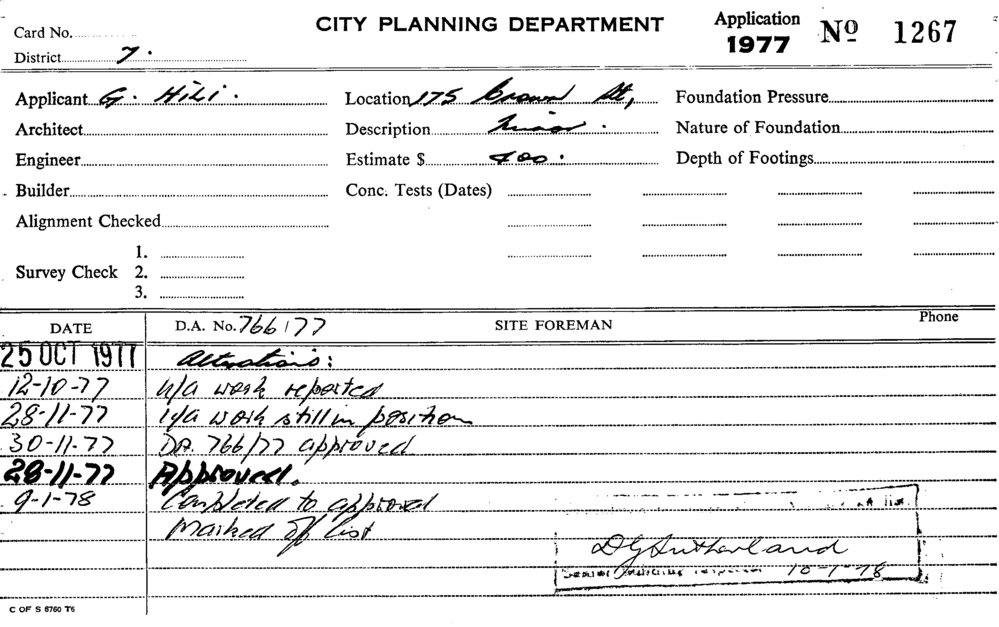 Card No.
CITY PLANNING DEPARTMENT
Application 1977 Nº 1267
District 7.
Applicant G. Hili.
Location 175 Crown St,
Foundation Pressure
Architect
Description Minor.
Nature of Foundation
Engineer
Estimate $ 400.
Depth of Footings
Builder
Conc. Tests (Dates)
Alignment Checked
Survey Check
1.
2.
3.
DATE
D.A. No. 766/77
SITE FOREMAN
Phone
25 OCT 1977 Alterations:
12-10-77 U/A work reported
28-11-77 U/A work still in position
30-11-77 DA. 766/77 approved
28-11-77 Approved.
9-1-78 Completed to approval
Marked off list
DGSutherland
10-1-78
C OF S 6760 T6